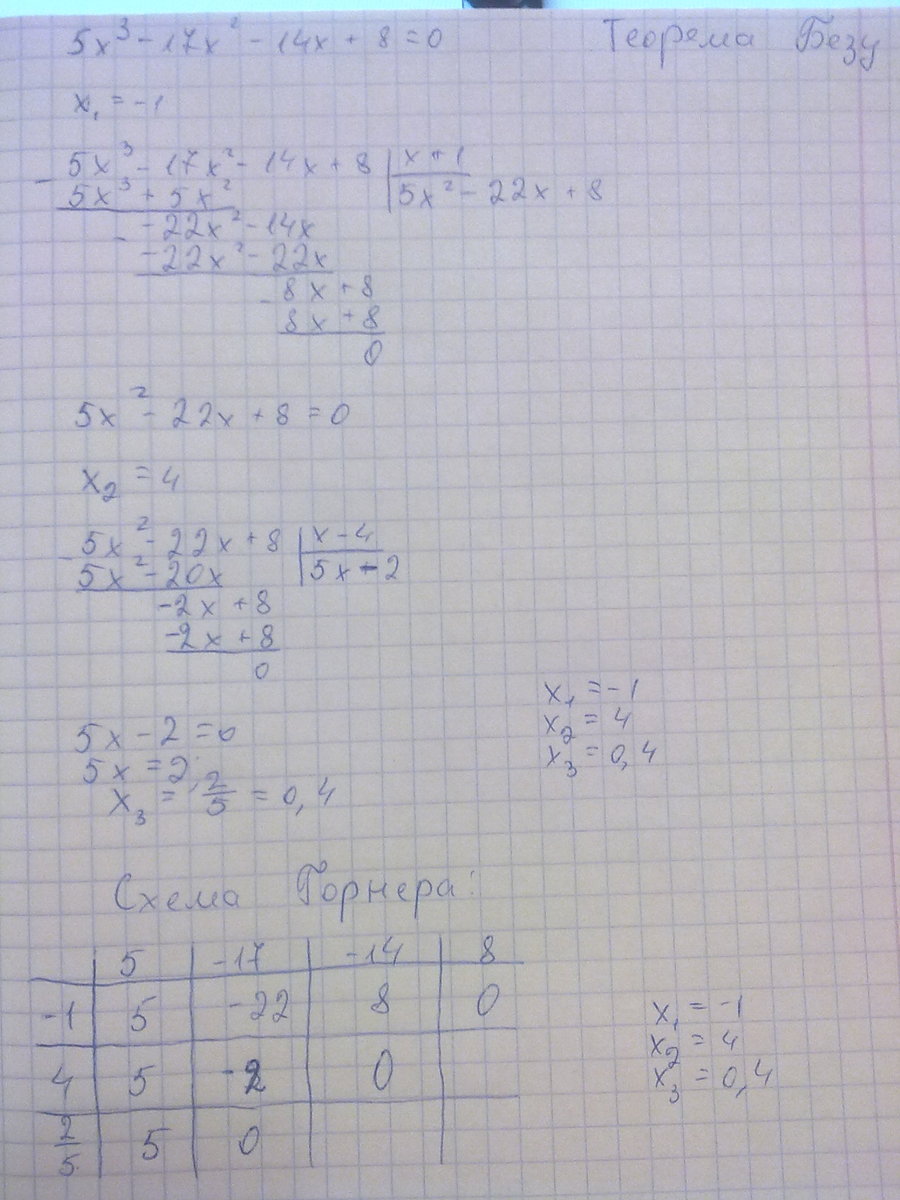 5x³ - 17x² - 14x + 8 = 0 Теорема Безу
x₁ = -1
- 5x³ - 17x² - 14x + 8 | x + 1
5x³ + 5x² | 5x² - 22x + 8
- -22x² - 14x
-22x² - 22x
- 8x + 8
8x + 8
0
5x² - 22x + 8 = 0
x₂ = 4
- 5x² - 22x + 8 | x - 4
5x² - 20x | 5x - 2
-2x + 8
-2x + 8
0
5x - 2 = 0
5x = 2;
x₃ = 2/5 = 0,4
x₁ = -1
x₂ = 4
x₃ = 0,4
Схема Горнера:
5 -17 -14 8
-1 5 -22 8 0
4 5 -2 0
2/5 5 0
x₁ = -1
x₂ = 4
x₃ = 0,4